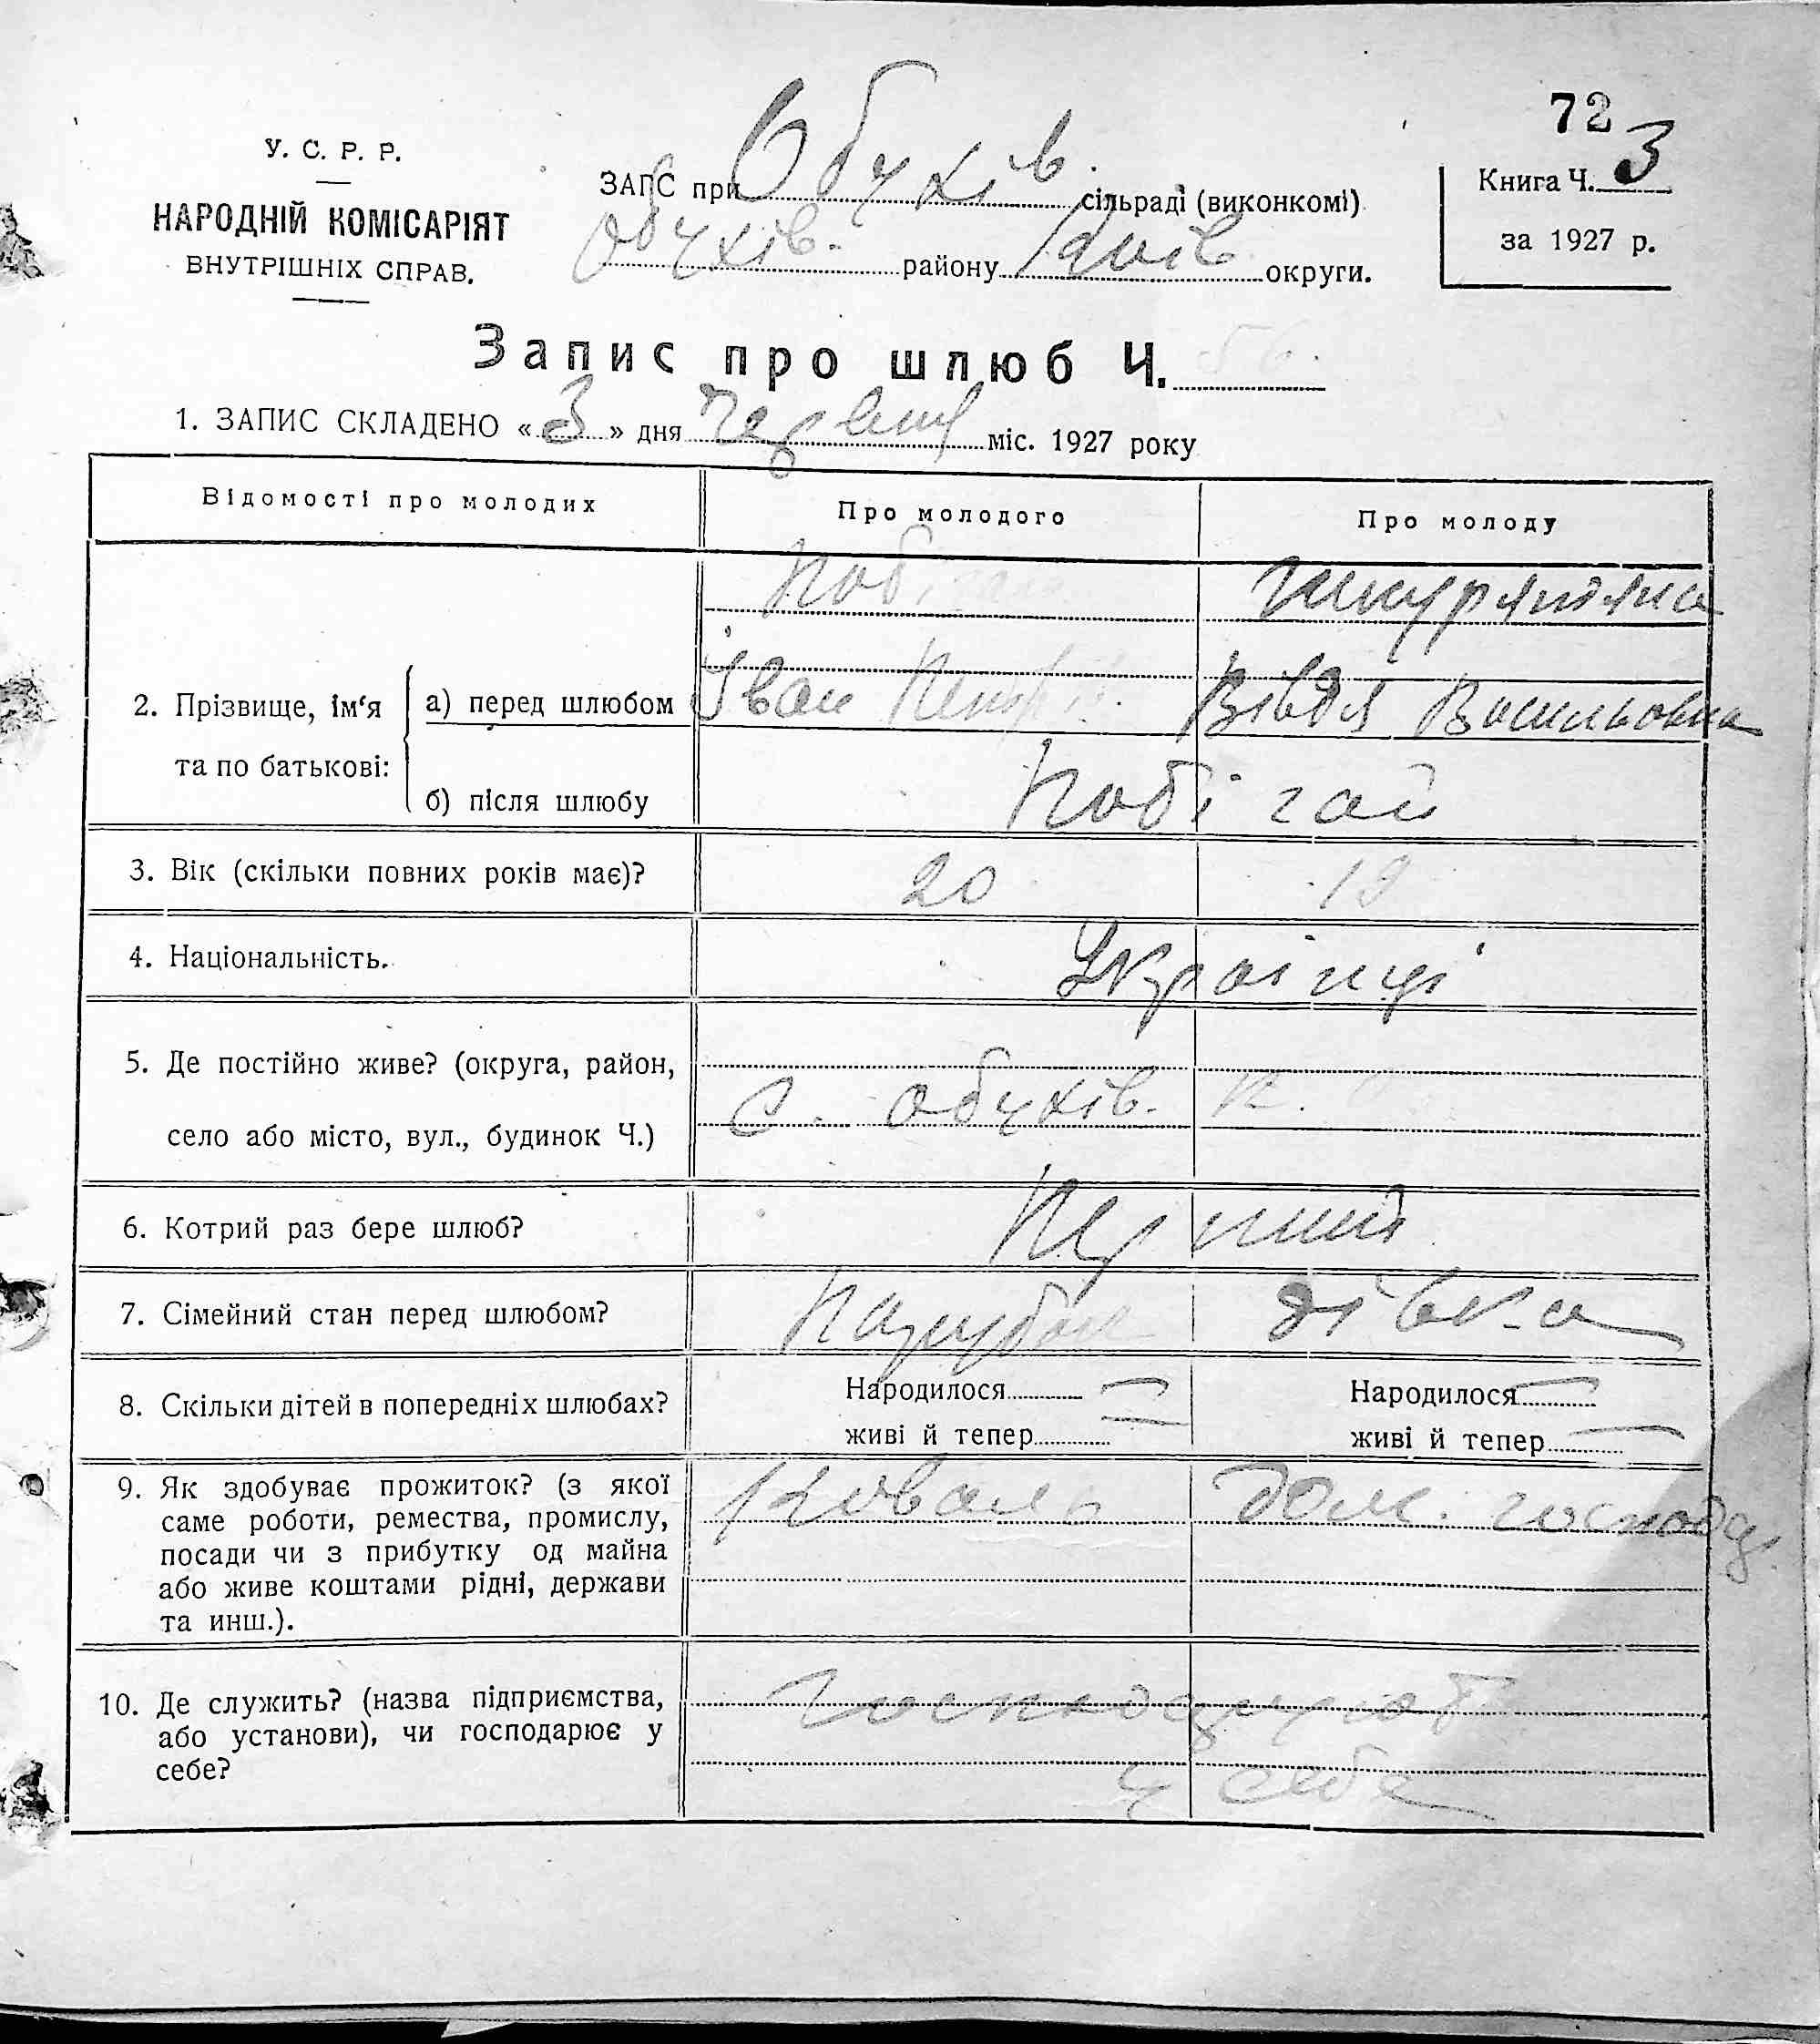 72
У. С. Р. Р.
НАРОДНІЙ КОМІСАРІЯТ
ВНУТРІШНІХ СПРАВ.
ЗАГС при Обухів. сільраді (виконкомі)
Обухів. району Київ округи.
Книга Ч. 3
за 1927 р.
Запис про шлюб Ч. 56.
1. ЗАПИС СКЛАДЕНО « 3 » дня червня міс. 1927 року
Відомості про молодих Про молодого Про молоду
2. Прізвище, ім‘я та по батькові:
а) перед шлюбом
Іван
Вівдя Васильовна
б) після шлюбу
Побігай
3. Вік (скільки повних років має)? 20 19
4. Національність. Українці
5. Де постійно живе? (округа, район,
село або місто, вул., будинок Ч.)
с. Обухів.
6. Котрий раз бере шлюб? Перший
7. Сімейний стан перед шлюбом? Парубок дівка
8. Скільки дітей в попередніх шлюбах?
Народилося — Народилося —
живі й тепер — живі й тепер —
9. Як здобуває прожиток? (з якої
саме роботи, ремества, промислу,
посади чи з прибутку од майна
або живе коштами рідні, держави
та инш.).
Коваль дом. господ.
10. Де служить? (назва підприємства,
або установи), чи господарює у
себе?
у себе